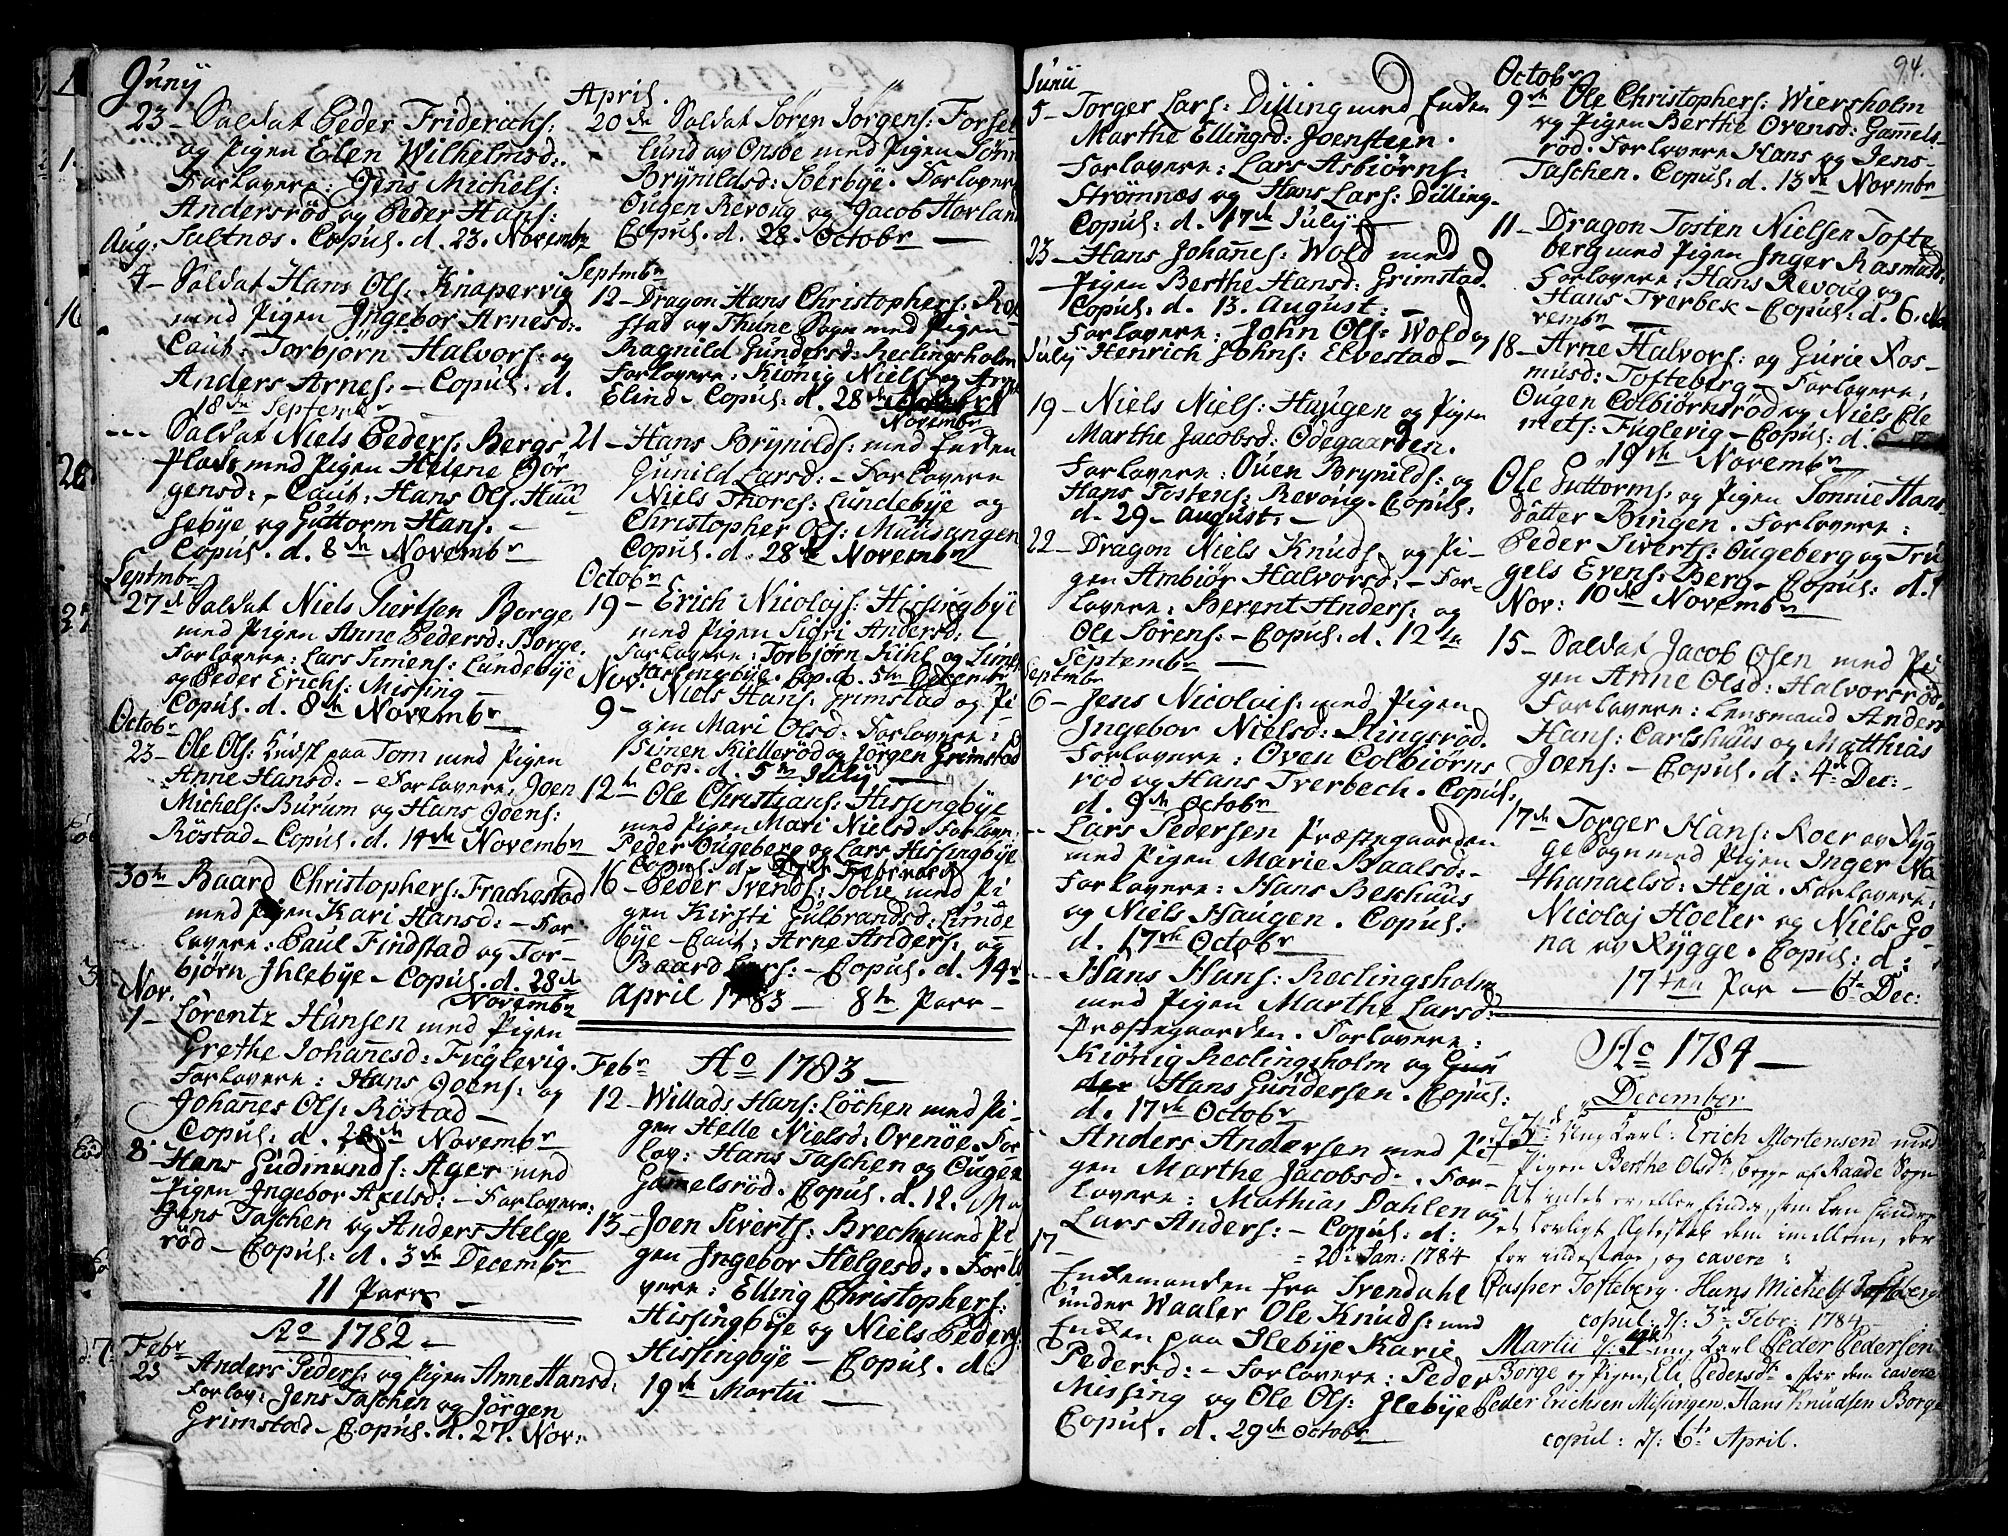 Junij
23 – Saldat Peder Friderichs:
og Pigen Elen Wilhelmsd:
Forlovere: Jens Michels:
Andersröd og Peder Hans:
Saltnæs. Copul. d. 23. Novembr
Aug:
4 – Saldat Hans Ols: Knapervig
med Pigen Ingebor Arnesd:
Caut: Torbjørn Halvors: og
Anders Arnes: – Copul. d.
18de Septembr
Saldat Niels Peders: Bergs
Plads med Pigen Helene Jör
gensd: – Caut: Hans Ols. Huu
sebÿe og Guttorm Hans: –
Copul. d. 8de Novembr
Septmbr
27d Saldat Niels Siertsen Borge
med Pigen Anne Pedersd: Borge.
Forlovere: Lars Simens: Lundebÿe
og Peder Erichs: Missing –
Copul. d. 8de Novembr
Octobr
23 – Ole Ols: paa Tom med Pigen
Anne Hansd: – Forlovere: Joen
Michels: Burum og Hans Joens:
Röstad – Copul. d. 14de Novembr
30te Baard Christophers: Frachastad
med Pigen Kari Hansd: – For-
lovere: Paul Findstad og Tor-
bjørn Ihlebÿe – Copul. d. 28d
Novembr
Nov.
1 – Lorentz Hansen med Pigen
Grethe Johannesd: Fuglevig.
Forlovere: Hans Joens: og
Johannes Ols: Röstad –
Copul: d. 28de Novembr
8 – Hans Gudmunds: Ager med
Pigen Ingebor Axelsd: – Forlovere:
Jens Taschen og Anders Helge
röd – Copul: d. 3de Decembr
11 Parr –
Ao 1782 –
Febr
23 Anders Peders: og Pigen Anne Hansd:
Forlov: Jens Taschen og Jörgen
Grimstad – Copul. d. 27. Nov:
April.
20de Saldat Sören Jörgens: Forset
lund av Onsöe med Pigen Sönn
Brÿnildsd: Sorbÿe. Forlovere
Ougen Revoug og Jacob Horland
Copul. d. 28. Octobr –
Septmbr
12 – Dragon Hans Christophers: Rof
stad av Thune Sogn med Pigen
Ragnild Gundersd: Reclingsholm
Forlovere: Kiönig Niels: og Arne
Elind – Copul: d. 28de
Novembr
21 – Hans Brÿnilds: med Enken
Gunild Larsd: – Forlovere
Niels Thores: Lundebÿe og
Christopher Ols: Mausangen
Copul. d. 28de Novembr
Octobr
19 – Erich Nicolajs: Hissingbÿe
med Pigen Sigri Andersd:
Forlovere: Torbjørn Kihl og Simen
Hissingbÿe. Cop. d. 5te Decembr
Nov:
9 – Niels Hans: Grimstad og Pi
gen Mari Olsd: Forlovere:
Simen Kielleröd og Jörgen Grimstad
Cop. d. 5te Julij –
12te Ole Christians: Hissingbÿe
med Pigen Mari Nielsd: Forlov:
Peder Ougeberg og Lars Hissingbÿe
Copul: d. Februarij
16 – Peder Svends: Solie med Pi
gen Kirsti Gulbrandsd: Lunde
bÿe – Caut: Arne Anders: og
Baard Lars: – Copul. d. 14d
April 1783 – 8te Parr –
Febr Ao 1783 –
12 – Willads Hans: Löchen med Pi-
gen Helle Nielsd: Ovenöe. For
lov: Hans Taschen og Ougen
Gamelsröd. Copul. d. 12. Ma
13 – Joen Siverts: Brech med Pi
gen Ingebor Helgesd: Forlo
vere: Elling Christophers:
Hissingbÿe og Niels Peders:
Hissingbÿe – Copul. d.
19de Martii –
Junii
5 – Torger Lars: Dilling med Enken
Marthe Ellingsd: Joensteen.
Forlovere: Lars Asbiörns:
Strömnæs og Hans Lars: Dilling.
Copul: d. 17de Julij –
23 – Hans Johanes: Wold med
Pigen Berthe Hansd: Grimstad.
Copul: d. 13. August: –
Forlovere: John Ols: Wold og
Henrich Johns: Elvestad –
Julij
19 – Niels Niels: Haugen og Pigen
Marthe Jacobsd: Ödegaarden.
Forlovere: Ouen Brÿnilds: og
Hans Tostens: Revoug. Copul:
d. 29 – August. –
22 – Dragon Niels Knuds: og Pi-
gen Ambiör Halvorsd: – For-
lovere: Berent Anders: og
Ole Sörens: – Copul: d. 12te
Septembr –
Septembr
6 – Jens Nicolais: med Pigen
Ingebor Nielsd: Slingsröd.
Forlovere: Oven Colbiörns
röd og Hans Tverbech. Copul:
d. 9de Octobr
– Lars Pedersen Præstegaarden
med Pigen Marie Baalsd: –
Forlovere: Hans Bekhuus
og Niels Haugen. Copul:
d. 17de Octobr
– Hans Hans: Reclingsholm
med Pigen Marthe Larsd:
Præstegaarden. Forlovere:
Kiönig Reclingsholm og Gun
der Hans Gundersen. Copul:
d. 17de Octobr
– Anders Andersen med Pi
gen Marthe Jacobsd: For-
lovere: Mathias Dahlen og
Lars Anders: – Copul: d:
= 20: Jan: 1784
17 –
Enkemanden fra Svendahl
under Waaler Ole Knuds: med
Enken paa Ilebÿe Karie
Pedersd: – Forlovere: Peder
Missing og Ole Ols: Ilebÿe
Copul. d. 29de Octobr
94.
Octobr
9de Ole Christophers: Wiersholm
og Pigen Berthe Ovensd: Gamels-
röd. Forlovere Hans og Jens
Taschen. Copul: d. 13de Novmbr
11 – Dragon Tosten Nielsen Tofte
berg med Pigen Inger Rasmusd:
Forlovere: Hans Revoug og
Hans Tverbek – Copul: d. 6. No
vembr –
18 – Arne Halvors: og Gurie Ras-
musd: Tofteberg – Forlovere:
Ougen Colbiörnsröd og Niels Cle
mets: Fuglevig – Copul: d.
19de Novembr
Ole Guttorms: og Pigen Sönnie Hans
datter Bingen. Forlovere:
Peder Siverts: Ougeberg og Tru
gels Evens: Berg – Copul: d.
Nov: 10de Novembr
15 – Saldat Jacob Olsen med Pi
gen Anne Olsd: Halvorsröd.
Forlovere: Lensmand Anders
Hans: Carlshuus og Matthias
Joens: – Copul. d: 4de Dec:
17de Torger Hans: Roer av Rÿg
ge Sogn med Pigen Inger Na
thanaelsd: Heja. Forlovere:
Nicolaj Hoeler og Niels Go
na av Rÿgge. Copul: d:
17ten Par – 6te Dec:
Ao 1784 –
December
Ung Karl: Erich Mortensen med
Pigen Berthe Olsdr, begge af Raade Sogn
At intet er, eller findes, som kan hindre
et lovligt Ægteskab dem imellem, der
for indestaae, og cavere:
Casper Tofteberg. Hans Michels: Tofteberg
copul: d: 3de Febr: 1784 –
Martii d: 4de ung Karl Peder Pedersen
Borge og Pigen Eli Pedersdr. For dem cavere
Peder Erichsen Missingen. Hans Knudsen Borge
copul: d: 6te April.